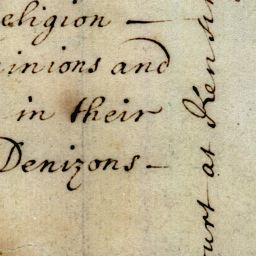 eligion —
inions and
in their
Denizons —
ourt at Kensin